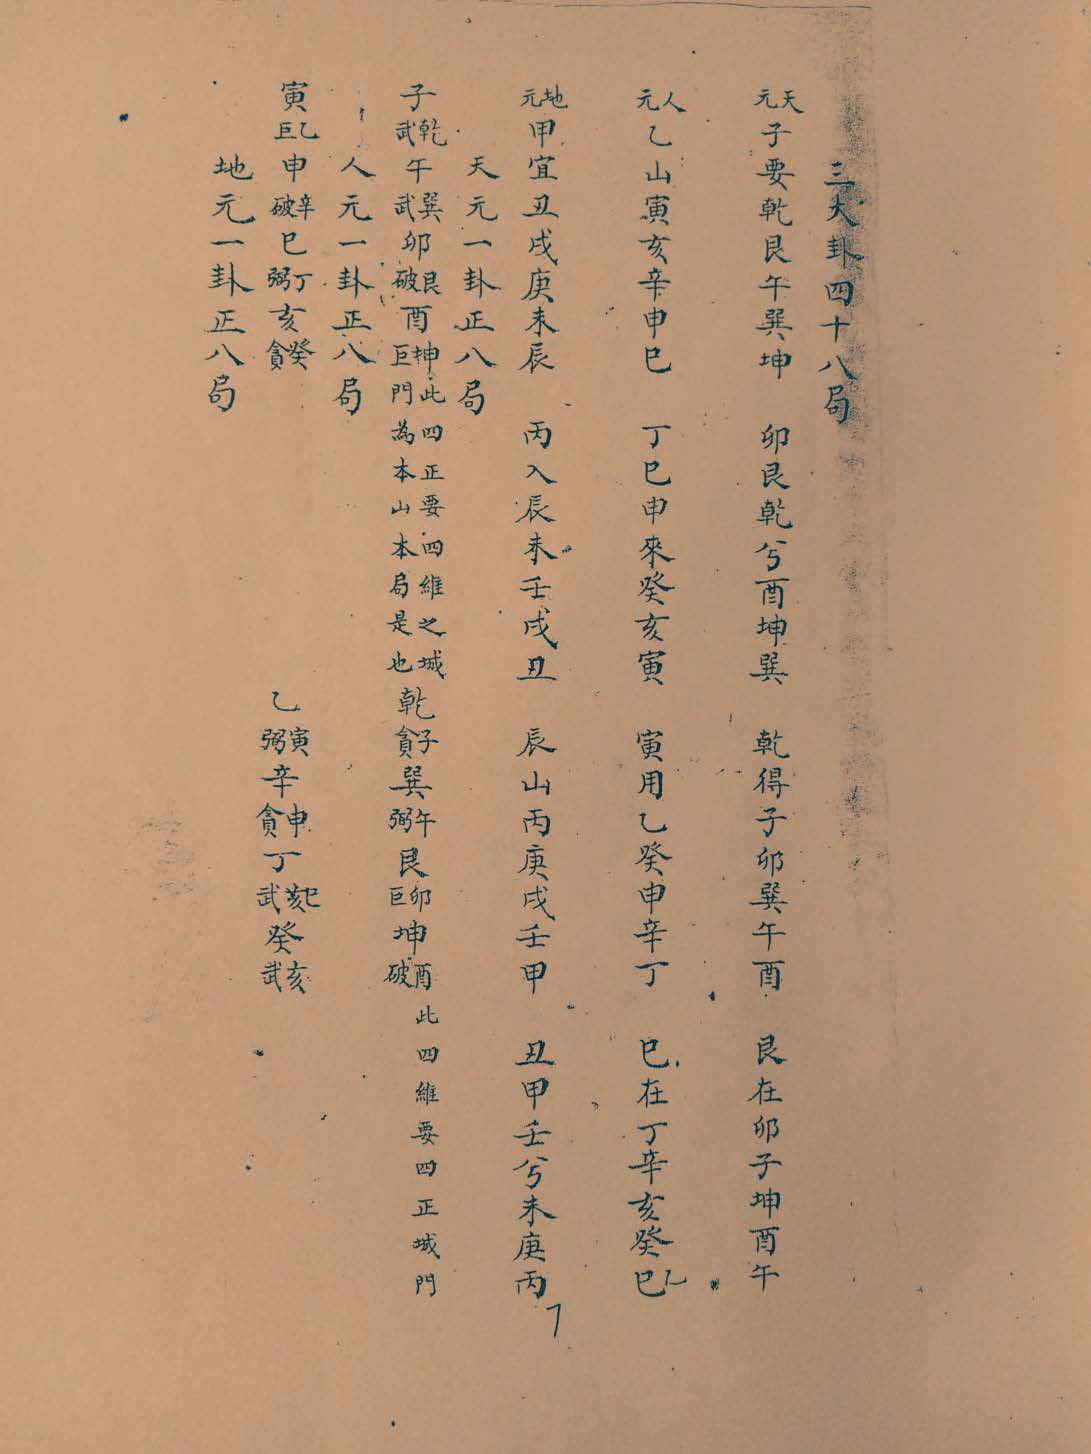 三大卦四十八局
天元 子要乾艮午巽坤 卯艮乾兮酉坤巽 乾得子卯巽午酉 艮在卯子坤酉午
人元 乙山寅亥辛申巳 丁巳申來癸亥寅 寅用乙癸申辛丁 巳在丁辛亥癸巳乙
地元 甲宜丑戌庚未辰 丙入辰未壬戌丑 辰山丙庚戌壬甲 丑甲壬兮未庚丙
天元一卦正八局
子乾武午巽武卯艮破酉坤巨門此四正要四維之城門為本山本局是也乾子貪巽午弼艮卯巨坤酉破此四維要四正城門
人元一卦正八局
寅乙巨申辛破巳丁弼亥癸貪 乙寅弼辛申貪丁巳武癸亥武
地元一卦正八局